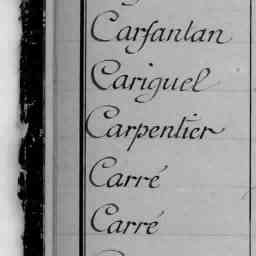 Carfantan
Cariguel
Carpentier
Carré
Carré